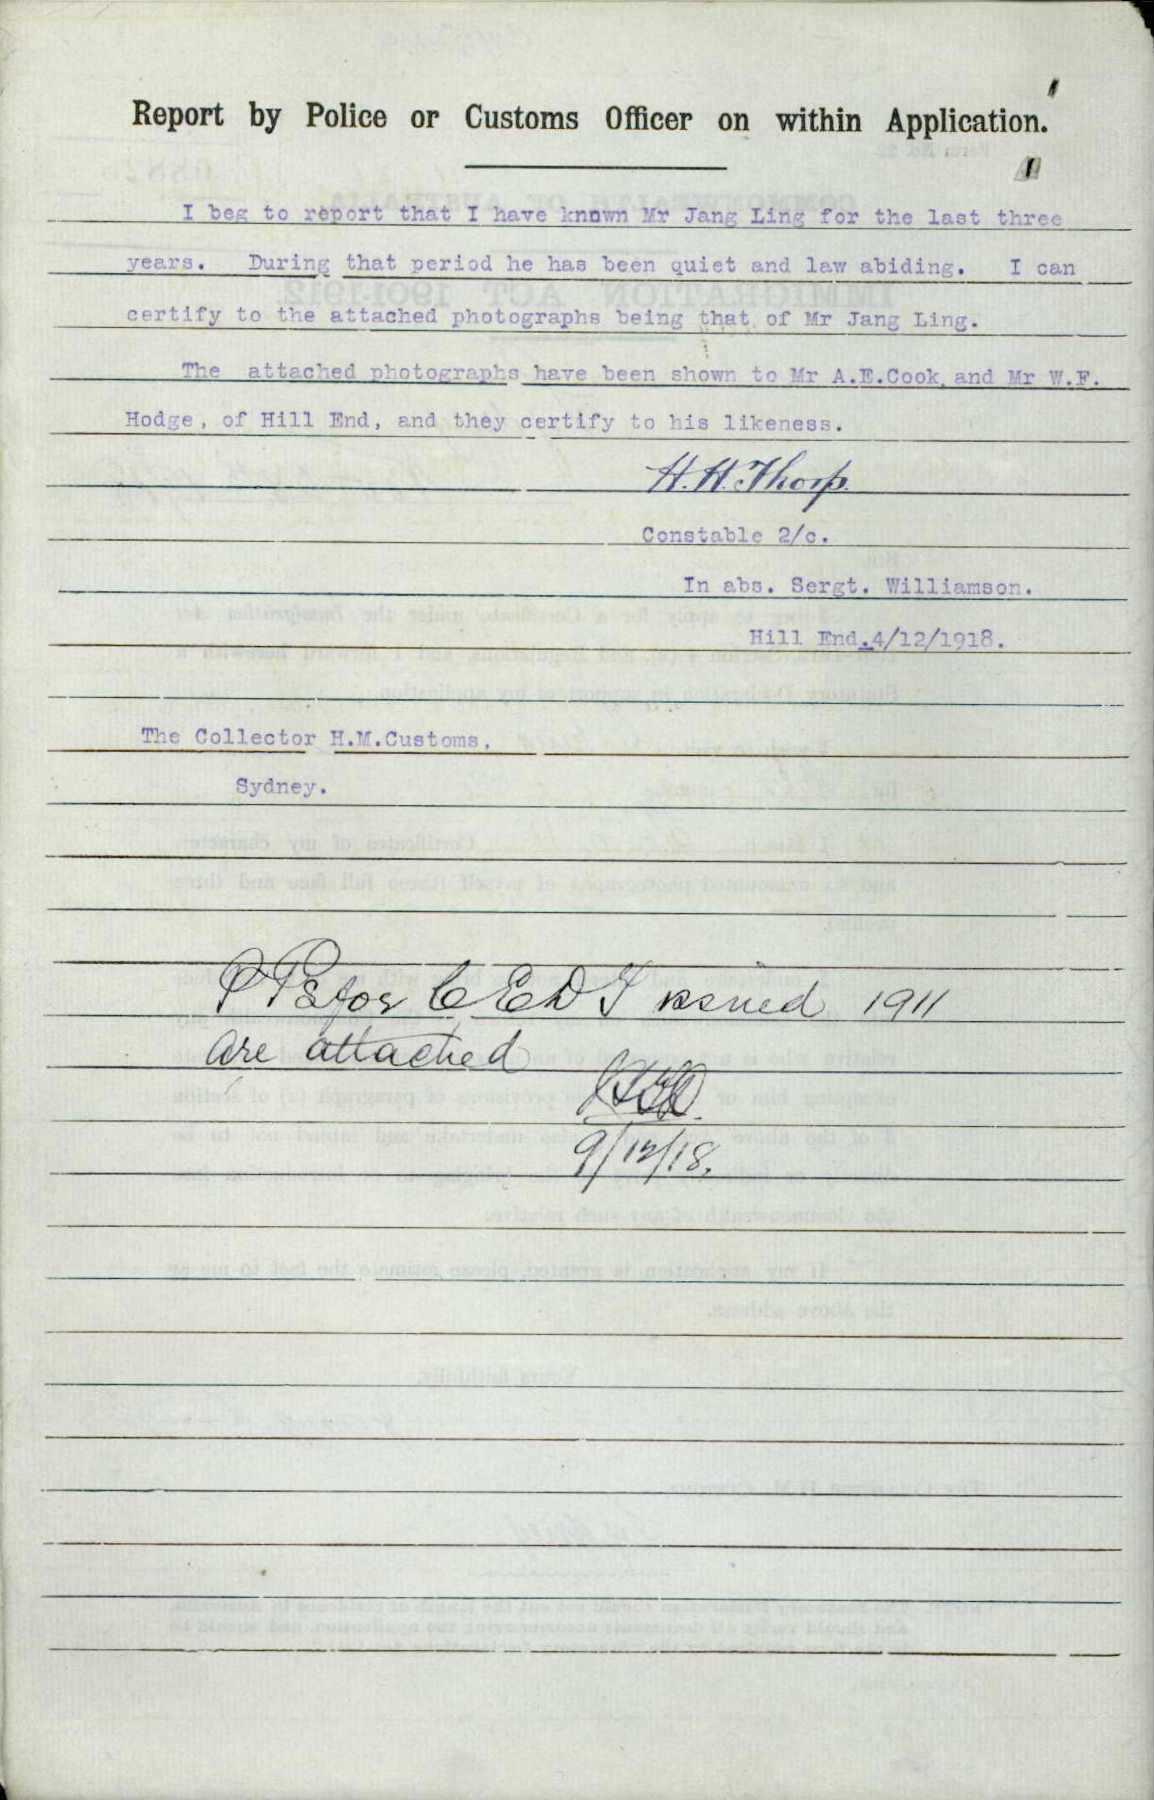 Report by Police or Customs Officer on within Application.
I beg to report that I have known Mr Jang Ling for the last three
years. During that period he has been quiet and law abiding. I can
certify to the attached photographs being that of Mr Jang Ling.
The attached photographs have been shown to Mr A.E.Cook, and Mr W.F.
Hodge, of Hill End, and they certify to his likeness.
H.H.Thorp.
Constable 2/c.
In abs. Sergt. Williamson.
Hill End. 4/12/1918.
The Collector H.M.Customs,
Sydney.
for C E D T issued 1911
are attached
9/12/18.